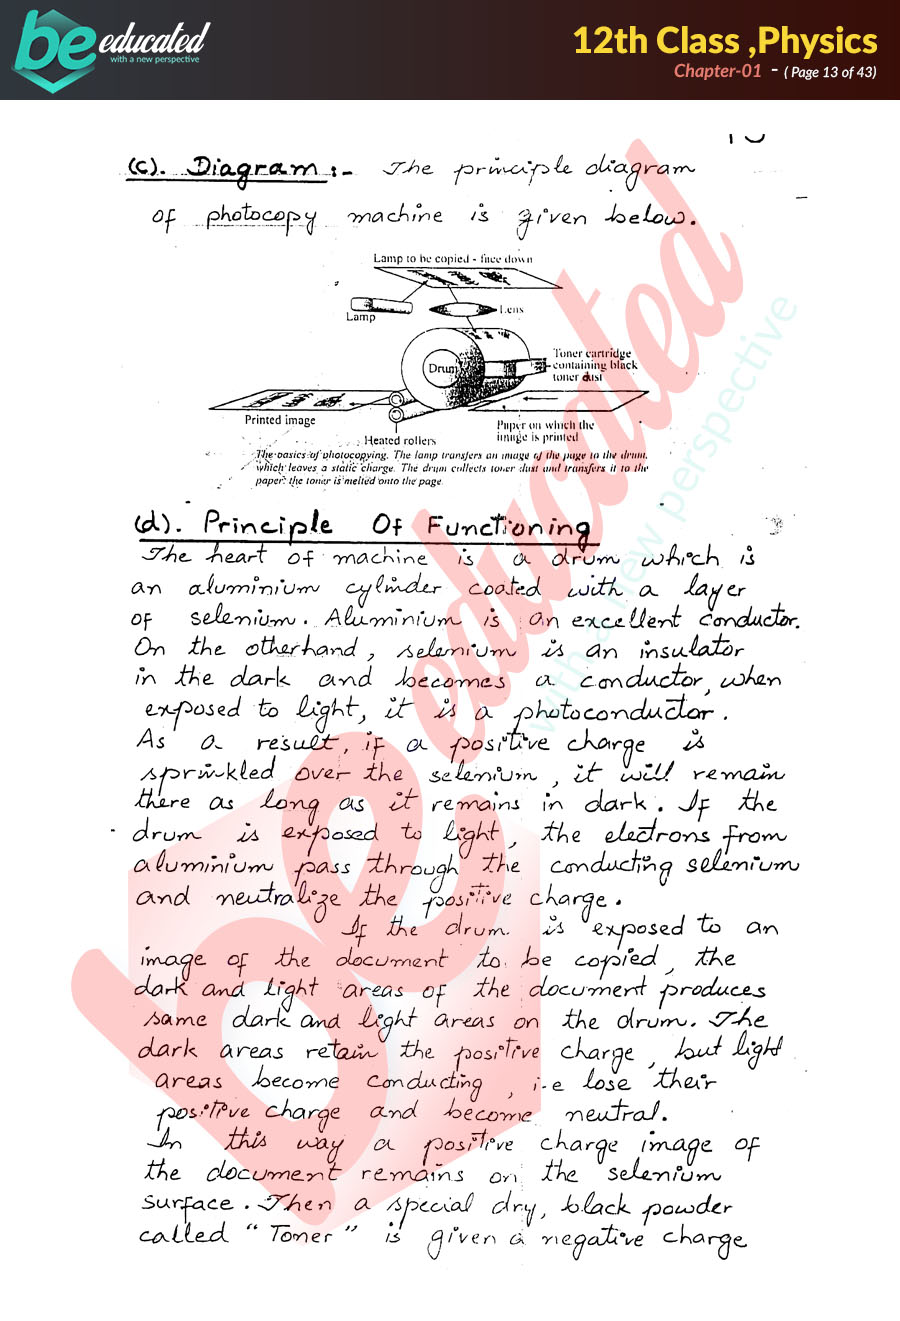 be educated
with a new perspective
12th Class ,Physics
Chapter-01 - ( Page 13 of 43)
(c). Diagram :- The principle diagram
of photocopy machine is given below.
Lamp to be copied - face down
Lamp
Lens
Drum
Toner cartridge
containing black
toner dust
Printed image
Heated rollers
Paper on which the
image is printed
The basics of photocopying. The lamp transfers an image of the page to the drum,
which leaves a static charge. The drum collects toner dust and transfers it to the
paper. the toner is melted onto the page.
(d). Principle Of Functioning
The heart of machine is a drum which is
an aluminium cylinder coated with a layer
of selenium. Aluminium is an excellent conductor.
On the otherhand, selenium is an insulator
in the dark and becomes a conductor, when
exposed to light, it is a photoconductor.
As a result, if a positive charge is
sprinkled over the selenium, it will remain
there as long as it remains in dark. If the
drum is exposed to light, the electrons from
aluminium pass through the conducting selenium
and neutralize the positive charge.
If the drum is exposed to an
image of the document to be copied, the
dark and light areas of the document produces
same dark and light areas on the drum. The
dark areas retain the positive charge, but light
areas become conducting, i.e lose their
positive charge and become neutral.
In this way a positive charge image of
the document remains on the selenium
surface. Then a special dry, black powder
called "Toner" is given a negative charge
be educated
with a new perspective